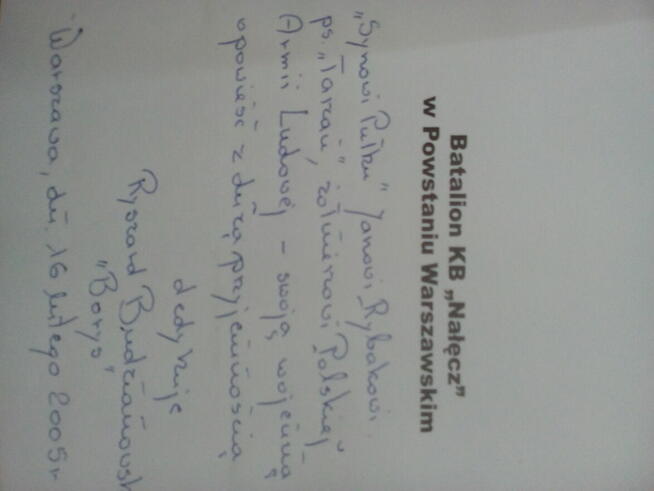 Batalion KB „Nałęcz”
w Powstaniu Warszawskim
„Synowi Pułku” Janowi Rybakowi
ps. „Tarzan”, żołnierzowi Polskiej
Armii Ludowej – swoją wojenną
opowieść z dużą przyjemnością
dedykuje
Ryszard Budzianowski
„Borys”
Warszawa, dn. 16 lutego 2005 r